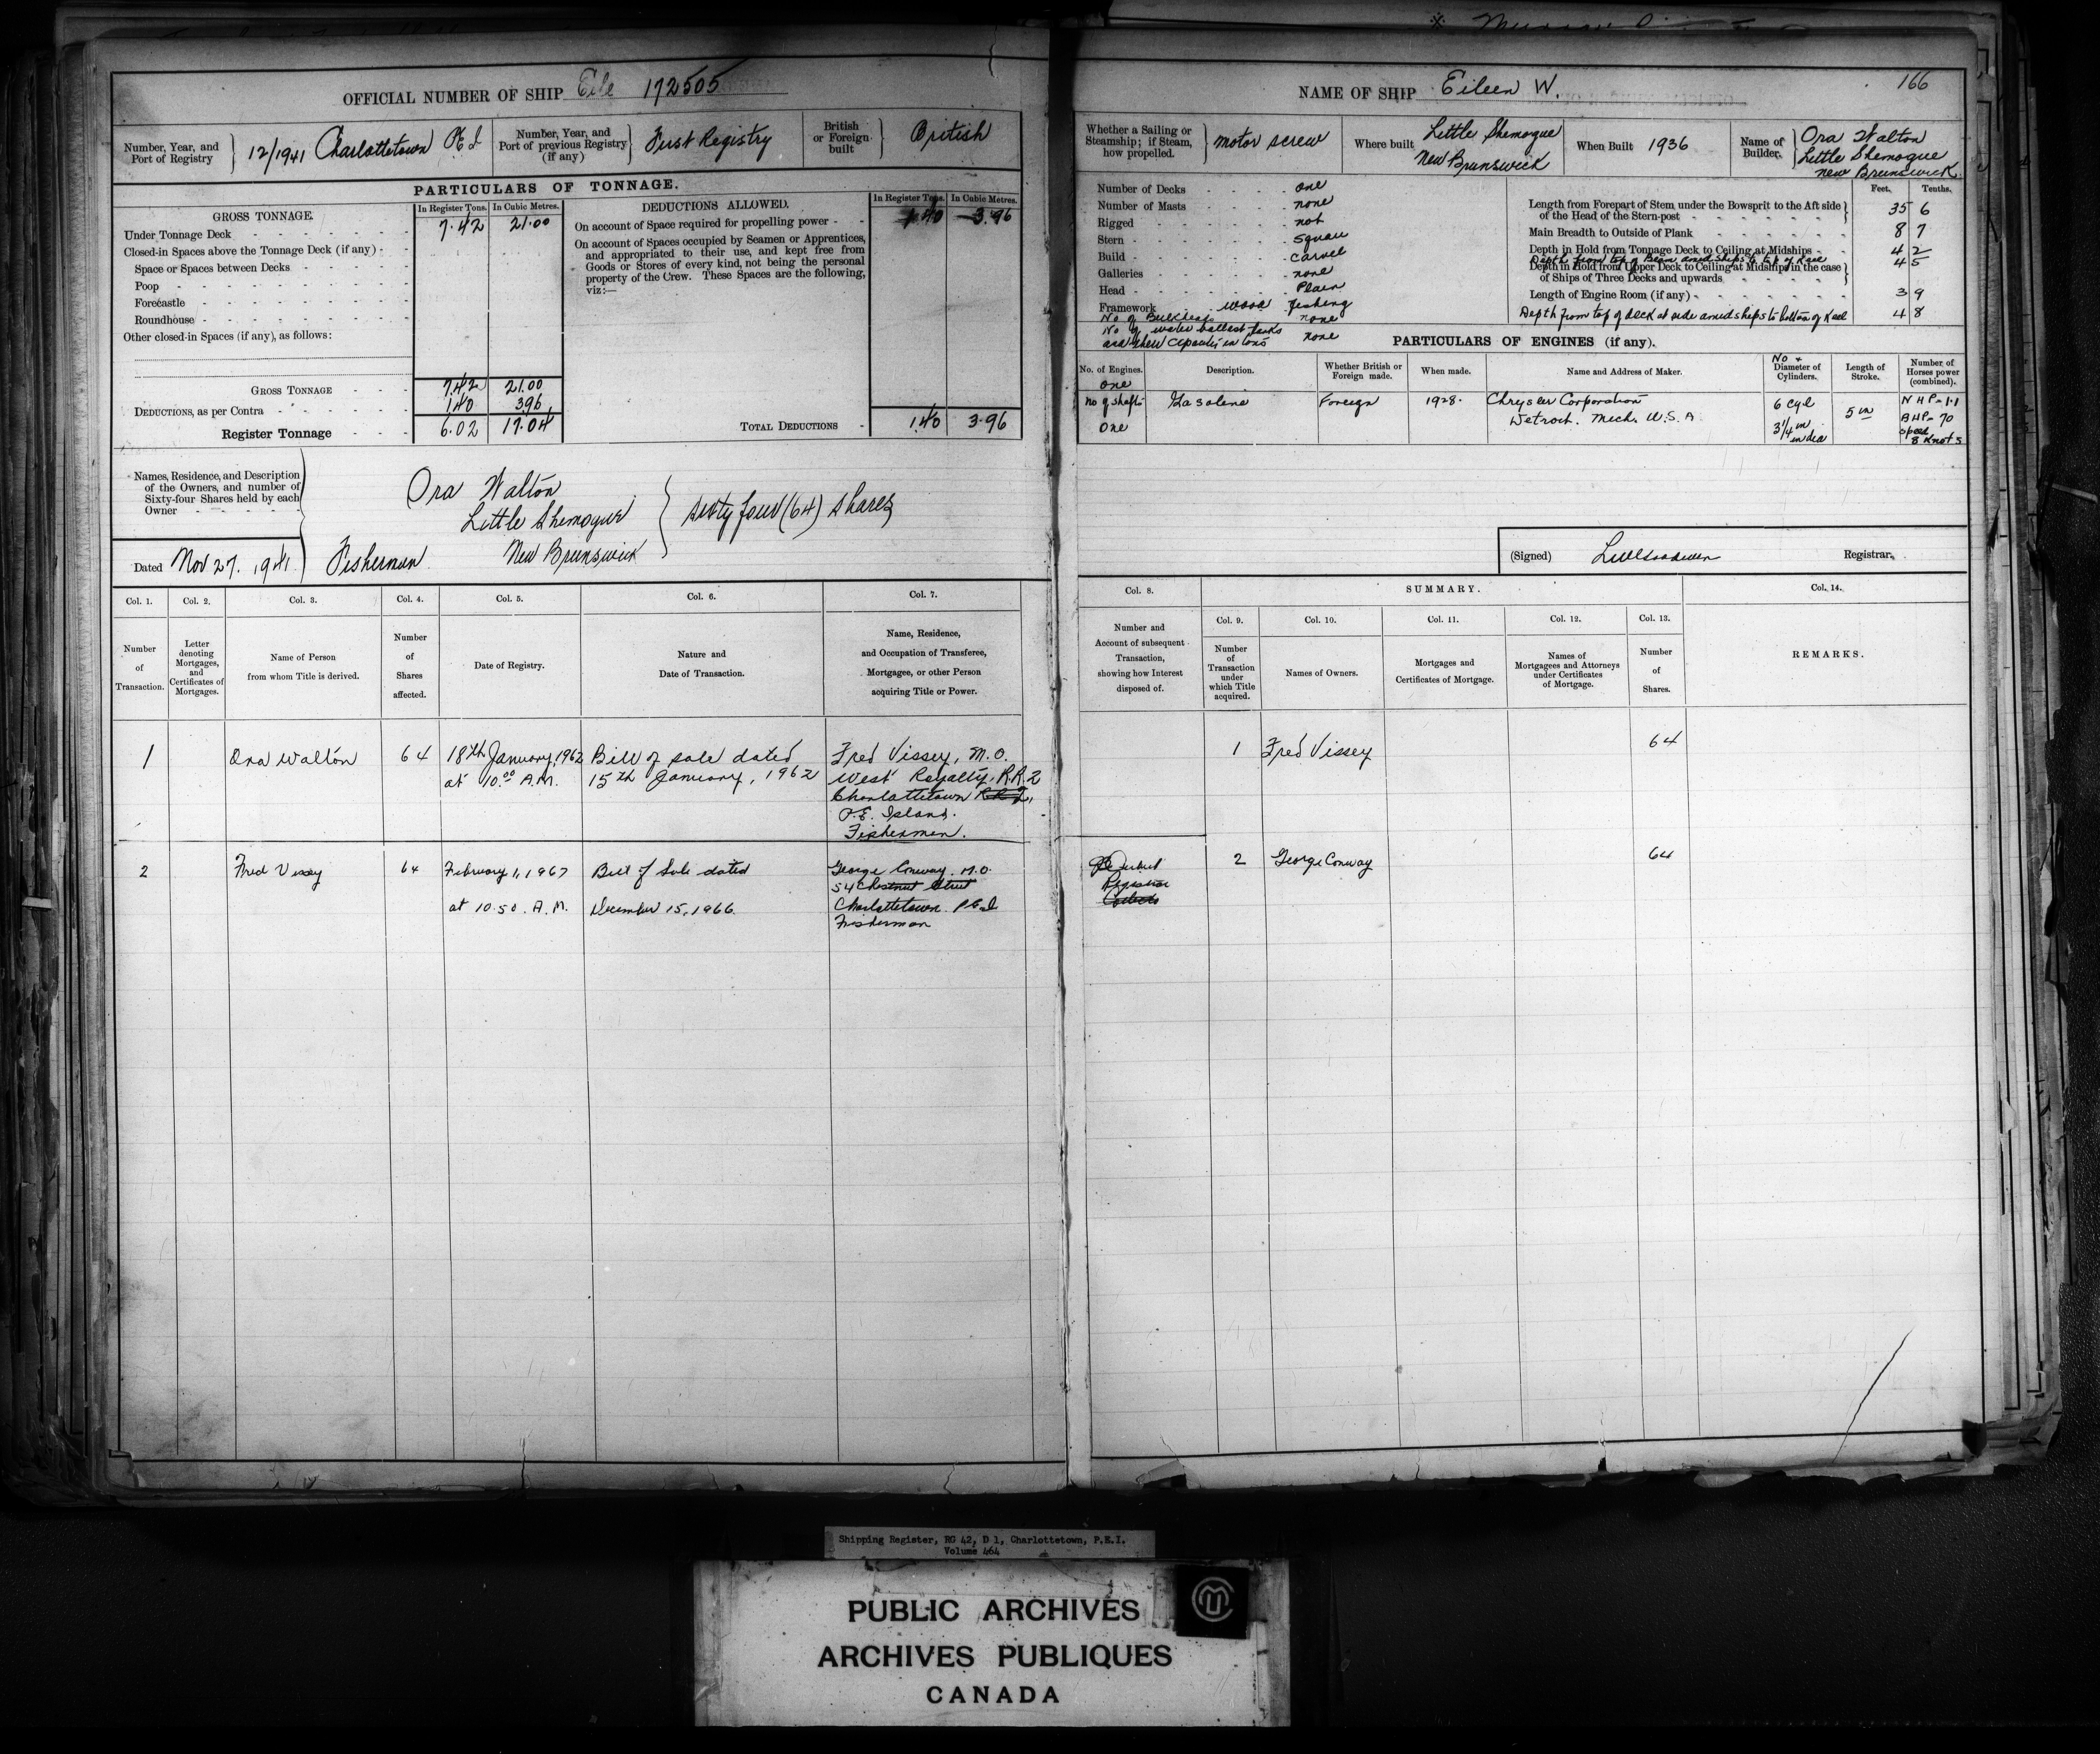 OFFICIAL NUMBER OF SHIP Eile 172505
Number, Year, and Port of Registry } 12/1941 Charlottetown P E I
Number, Year, and Port of previous Registry (if any) } First Registry
British or Foreign built } British
PARTICULARS OF TONNAGE.
GROSS TONNAGE.
In Register Tons. In Cubic Metres.
Under Tonnage Deck 7.42 21.00
Closed-in Spaces above the Tonnage Deck (if any)
Space or Spaces between Decks
Poop
Forecastle
Roundhouse
Other closed-in Spaces (if any), as follows:
GROSS TONNAGE 7.42 21.00
DEDUCTIONS, as per Contra 1.40 3.96
Register Tonnage 6.02 17.04
DEDUCTIONS ALLOWED.
In Register Tons. In Cubic Metres.
On account of Space required for propelling power 1.40 3.96
On account of Spaces occupied by Seamen or Apprentices,
and appropriated to their use, and kept free from
Goods or Stores of every kind, not being the personal
property of the Crew. These Spaces are the following,
viz:—
TOTAL DEDUCTIONS 1.40 3.96
Names, Residence, and Description
of the Owners, and number of
Sixty-four Shares held by each
Owner
Ora Walton
Little Shemogue } sixty four (64) shares
Fisherman New Brunswick
Dated Nov 27. 1941
Col. 1. Col. 2. Col. 3. Col. 4. Col. 5. Col. 6. Col. 7.
Number of Transaction.
Letter denoting Mortgages, and Certificates of Mortgages.
Name of Person from whom Title is derived.
Number of Shares affected.
Date of Registry.
Nature and Date of Transaction.
Name, Residence, and Occupation of Transferee, Mortgagee, or other Person acquiring Title or Power.
1 Ora Walton 64 18th January, 1962 Bill of sale dated Fred Vissey, M.O.
at 10.00 A.M. 15th January, 1962 West Royalty, R.R.2
Charlottetown R.R.2,
P.E. Island.
Fisherman.
2 Fred Vissey 64 February 1, 1967 Bill of Sale dated George Conway. M.O.
54 Chestnut Street
at 10.50. A.M. December 15, 1966. Charlottetown. P.E.I
Fisherman
NAME OF SHIP Eileen W. 166
Whether a Sailing or Steamship; if Steam, how propelled. } motor screw
Where built Little Shemogue New Brunswick
When Built 1936
Name of Builder. Ora Walton Little Shemogue New Brunswick
Number of Decks one
Number of Masts none
Rigged not
Stern square
Build carvel
Galleries none
Head Plain
Framework wood fishing
No of Bulkheads none
No of water ballast tanks
and their capacity in tons none
Feet. Tenths.
Length from Forepart of Stem under the Bowsprit to the Aft side
of the Head of the Stern-post 35 6
Main Breadth to Outside of Plank 8 7
Depth in Hold from Tonnage Deck to Ceiling at Midships 4 2
Depth from top of Beam amidships to top of Keel 4 5
Depth in Hold from Upper Deck to Ceiling at Midships, in the case
of Ships of Three Decks and upwards
Length of Engine Room (if any) 3 9
Depth from top of deck at side amidships to bottom of Keel 4 8
PARTICULARS OF ENGINES (if any).
No. of Engines. one
no of shafts One
Description. Gasolene
Whether British or Foreign made. Foreign
When made. 1928.
Name and Address of Maker. Chrysler Corporation
Detroit. Mich. U.S.A
No + Diameter of Cylinders. 6 cyl 3¼ in in dia
Length of Stroke. 5 in
Number of Horses power (combined). N H P = 1.1
B H P = 70
speed 8 Knots
(Signed) Registrar.
Col. 8. SUMMARY. Col. 14.
Col. 9. Col. 10. Col. 11. Col. 12. Col. 13.
Number and Account of subsequent Transaction, showing how Interest disposed of.
Number of Transaction under which Title acquired.
Names of Owners.
Mortgages and Certificates of Mortgage.
Names of Mortgagees and Attorneys under Certificates of Mortgage.
Number of Shares.
REMARKS.
1 Fred Vissey 64
2 George Conway 64
Registrar
Shipping Register, RG 42, D 1, Charlottetown, P.E.I.
Volume 464
PUBLIC ARCHIVES
ARCHIVES PUBLIQUES
CANADA